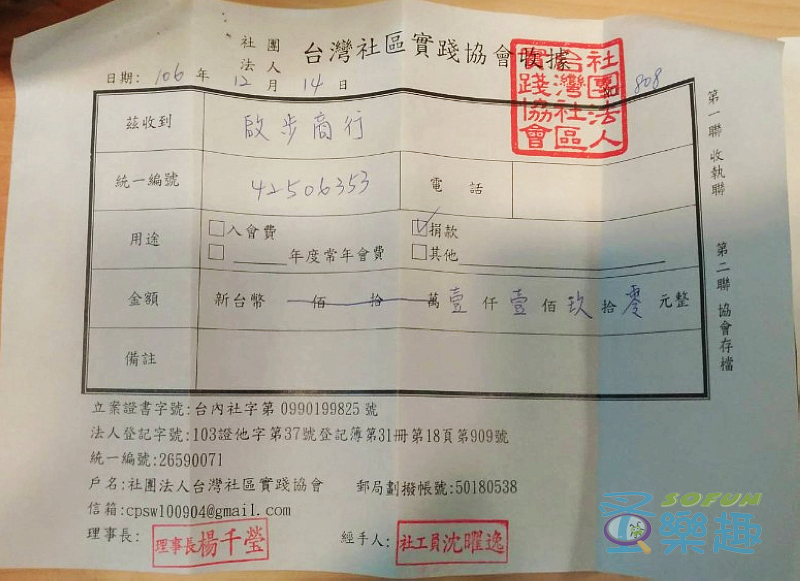 社團法人 台灣社區實踐協會收據
日期: 106 年 12 月 14 日
808
社團法人台灣社區實踐協會
茲收到 啟步商行
統一編號 42506353 電話
用途 □入會費 ☑捐款
□____年度常年會費 □其他
金額 新台幣 佰 拾 萬壹仟壹佰玖拾零元整
備註
第一聯 收執聯 第二聯 協會存檔
立案證書字號:台內社字第 0990199825 號
法人登記字號:103證他字第37號登記簿第31冊第18頁第909號
統一編號:26590071
戶名:社團法人台灣社區實踐協會 郵局劃撥帳號:50180538
信箱:cpsw100904@gmail.com
理事長: 理事長楊千瑩 經手人: 社工員沈曜逸
SOFUN
樂趣